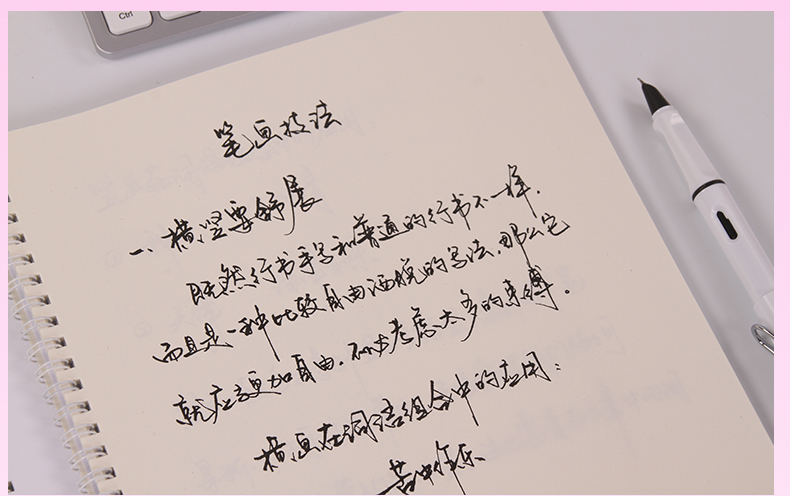 Ctrl
笔画技法
一、横竖要舒展
既然行书手写和普通的行书不一样，
而且是一种比较自由洒脱的写法，那么它
就应该更加自由，不必考虑太多的束缚。
横画在词语组合中的应用：
苦中作乐